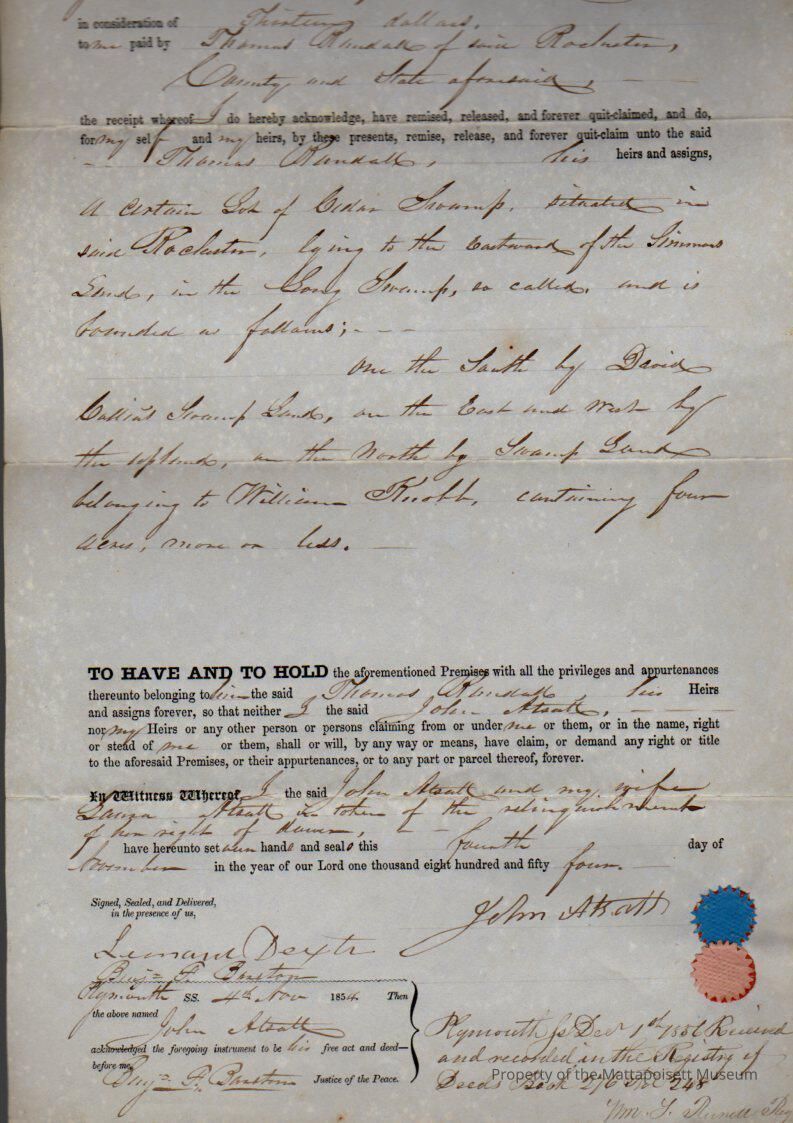 in consideration of Thirteen dollars.
to me paid by Thomas Randall of said Rochester,
County, and State aforesaid,
the receipt whereof I do hereby acknowledge, have remised, released, and forever quit-claimed, and do,
for my self and my heirs, by these presents, remise, release, and forever quit-claim unto the said
Thomas Randall, his heirs and assigns,
A certain Lot of Cedar Swamp, situated in
said Rochester, lying to the Eastward of the Simmons
Land, in the Long Swamp, so called, and is
bounded as follows;
One the South by David
Swamp Land, on the East and West by
the upland, on the North by Swamp Land
belonging to William containing four
acres, more or less.
TO HAVE AND TO HOLD the aforementioned Premises with all the privileges and appurtenances
thereunto belonging to him the said Thomas Randall, his Heirs
and assigns forever, so that neither I the said John Atsatt,
nor my Heirs or any other person or persons claiming from or under me or them, or in the name, right
or stead of me or them, shall or will, by any way or means, have claim, or demand any right or title
to the aforesaid Premises, or their appurtenances, or to any part or parcel thereof, forever.
In Witness Whereof, I the said John Atsatt and my wife
Atsatt in token of the relinquishment
of her right of dower,
have hereunto set our hands and seals this fourth day of
November in the year of our Lord one thousand eight hundred and fifty four.
Signed, Sealed, and Delivered,
in the presence of us,
John Atsatt
Leonard Dexter
Benj. F. Barstow
Plymouth SS. 4th Nov 1854. Then
the above named
John Atsatt
acknowledged the foregoing instrument to be his free act and deed—
before me,
Benj. F. Barstow Justice of the Peace.
Plymouth Ss Decr 1st 1856 Received
and recorded in the Registry of
Deeds Book 276 248
Property of the Mattapoisett Museum
Wm. S. Russell Reg